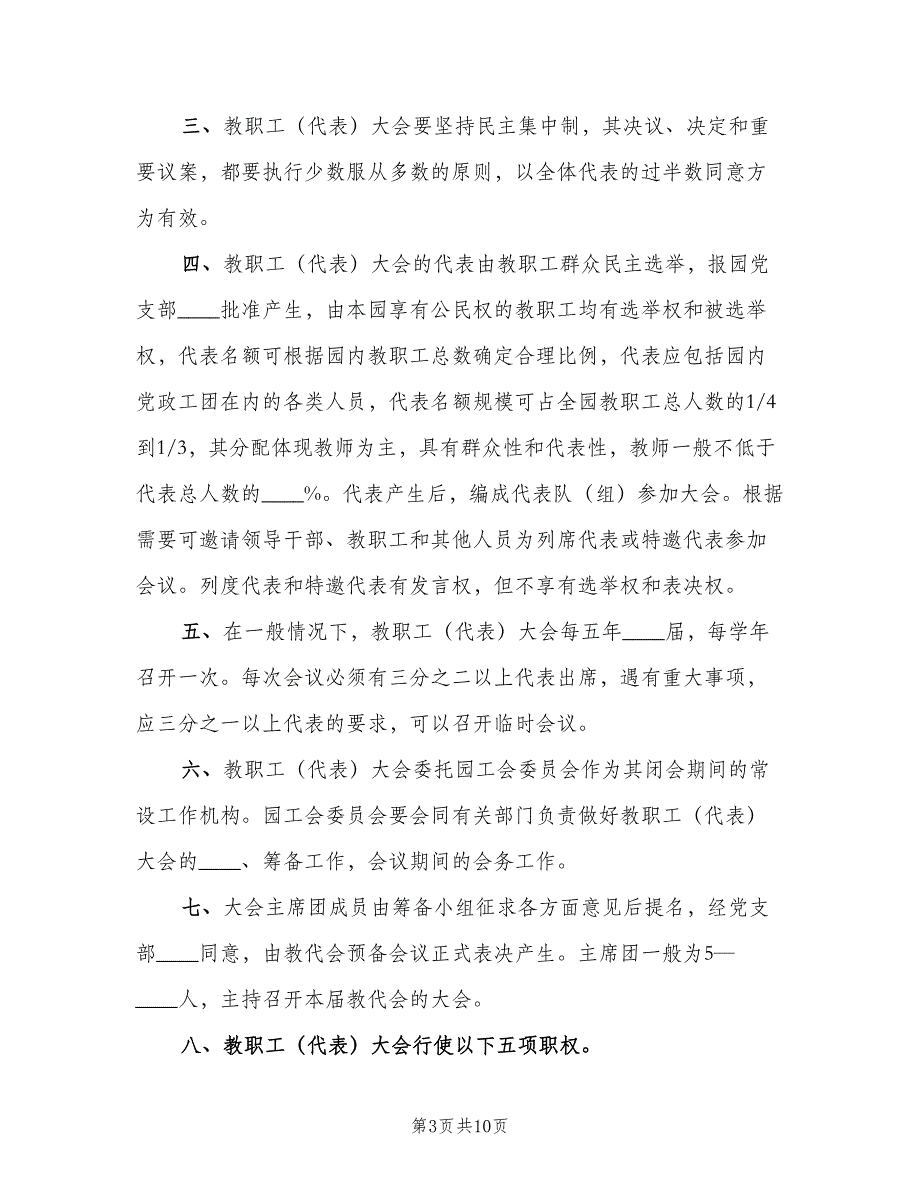 三、教职工（代表）大会要坚持民主集中制，其决议、决定和重
要议案，都要执行少数服从多数的原则，以全体代表的过半数同意方
为有效。
四、教职工（代表）大会的代表由教职工群众民主选举，报园党
支部____批准产生，由本园享有公民权的教职工均有选举权和被选举
权，代表名额可根据园内教职工总数确定合理比例，代表应包括园内
党政工团在内的各类人员，代表名额规模可占全园教职工总人数的1/4
到1/3，其分配体现教师为主，具有群众性和代表性，教师一般不低于
代表总人数的____%。代表产生后，编成代表队（组）参加大会。根据
需要可邀请领导干部、教职工和其他人员为列席代表或特邀代表参加
会议。列度代表和特邀代表有发言权，但不享有选举权和表决权。
五、在一般情况下，教职工（代表）大会每五年____届，每学年
召开一次。每次会议必须有三分之二以上代表出席，遇有重大事项，
应三分之一以上代表的要求，可以召开临时会议。
六、教职工（代表）大会委托园工会委员会作为其闭会期间的常
设工作机构。园工会委员会要会同有关部门负责做好教职工（代表）
大会的____、筹备工作，会议期间的会务工作。
七、大会主席团成员由筹备小组征求各方面意见后提名，经党支
部____同意，由教代会预备会议正式表决产生。主席团一般为5—
____人，主持召开本届教代会的大会。
八、教职工（代表）大会行使以下五项职权。
第3页共10页